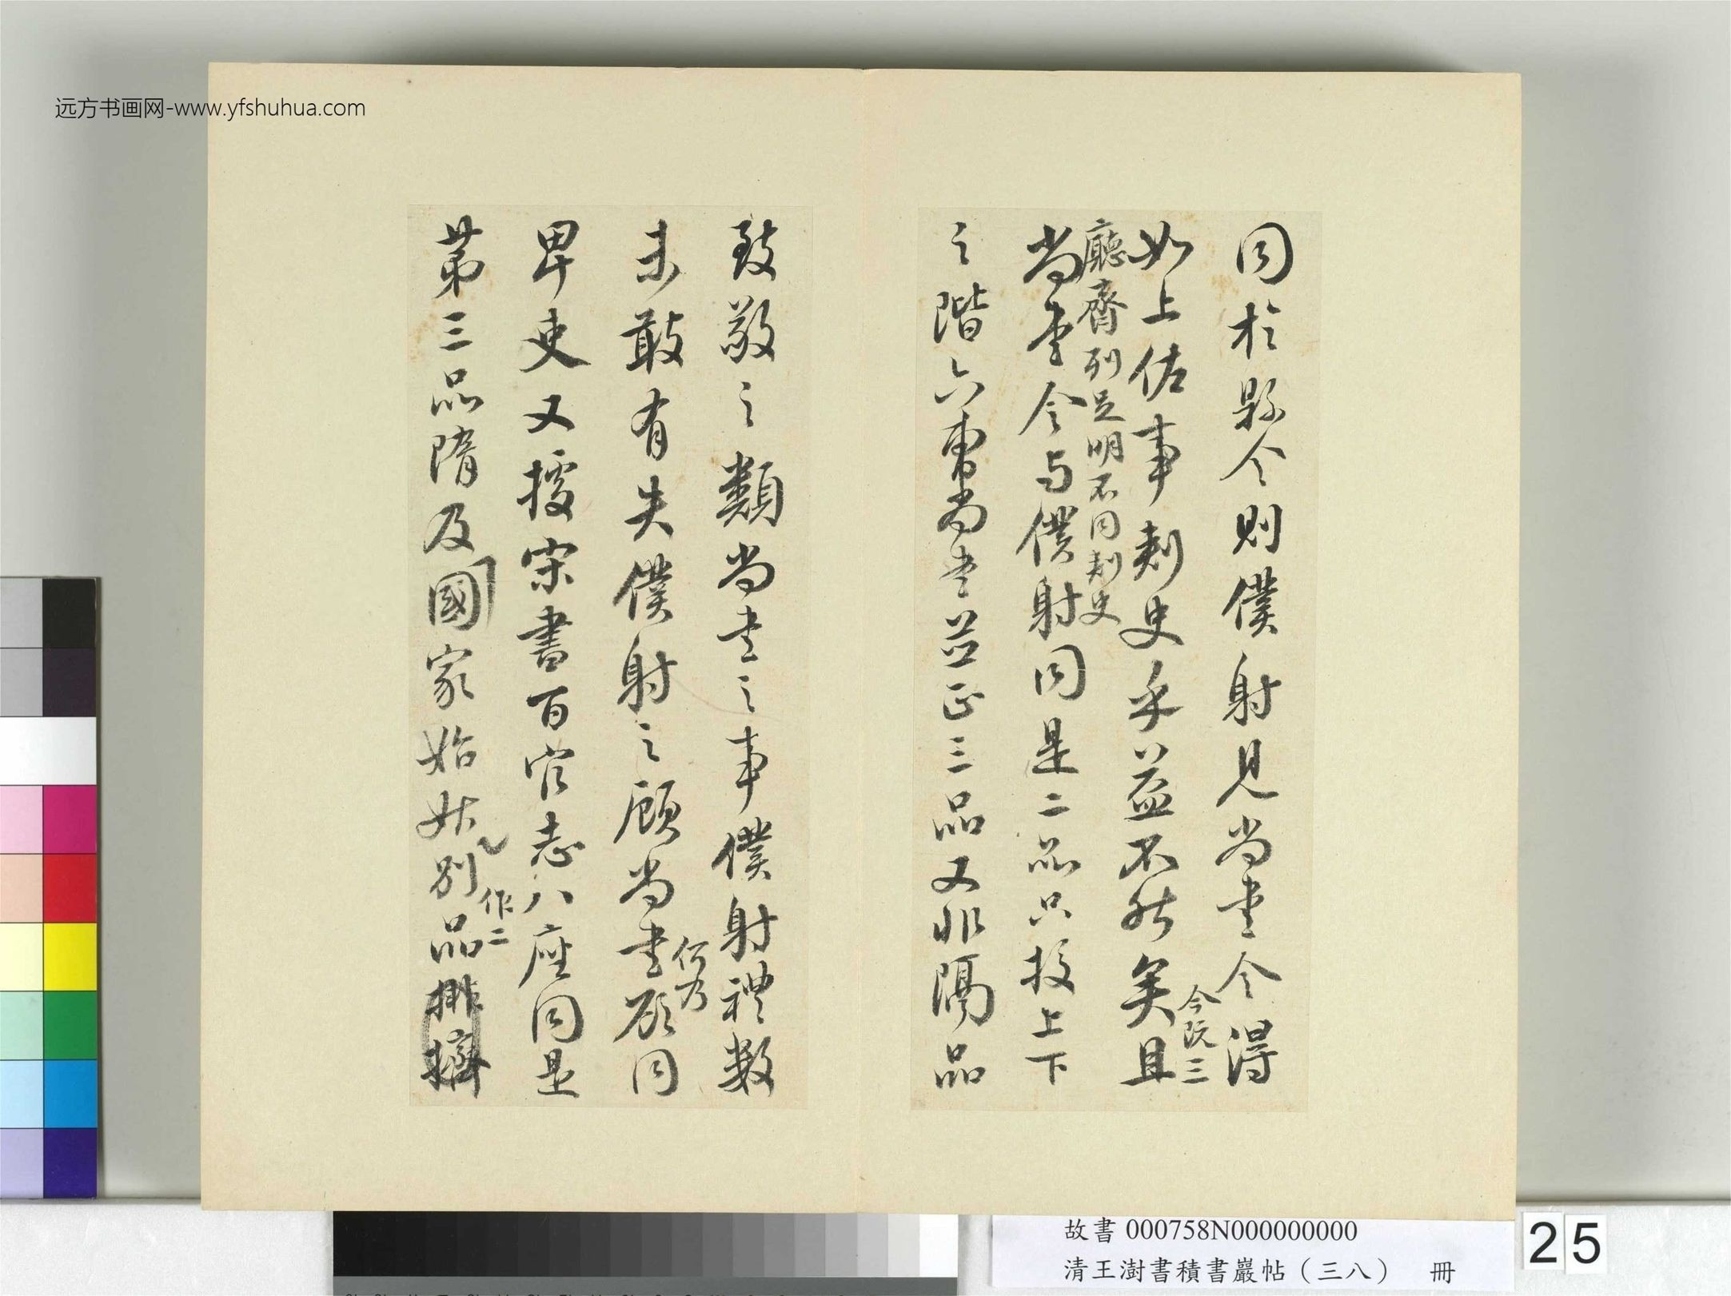 远方书画网-www.yfshuhua.com
同於縣令則僕射見尚書令得
如上佐事刺史乎益不然矣且
今既三
廳齊列足明不同刺史
尚書令与僕射同是二品只挍上下
之階六曹尚書並正三品又非隔品
致敬之類尚書之事僕射禮數
未敢有失僕射之顧尚書欲同
何乃
卑吏又據宋書百官志八座同是
第三品隋及國家始升別品排擠
作二
故書 000758N000000000
清王澍書積書巖帖（三八） 冊
25